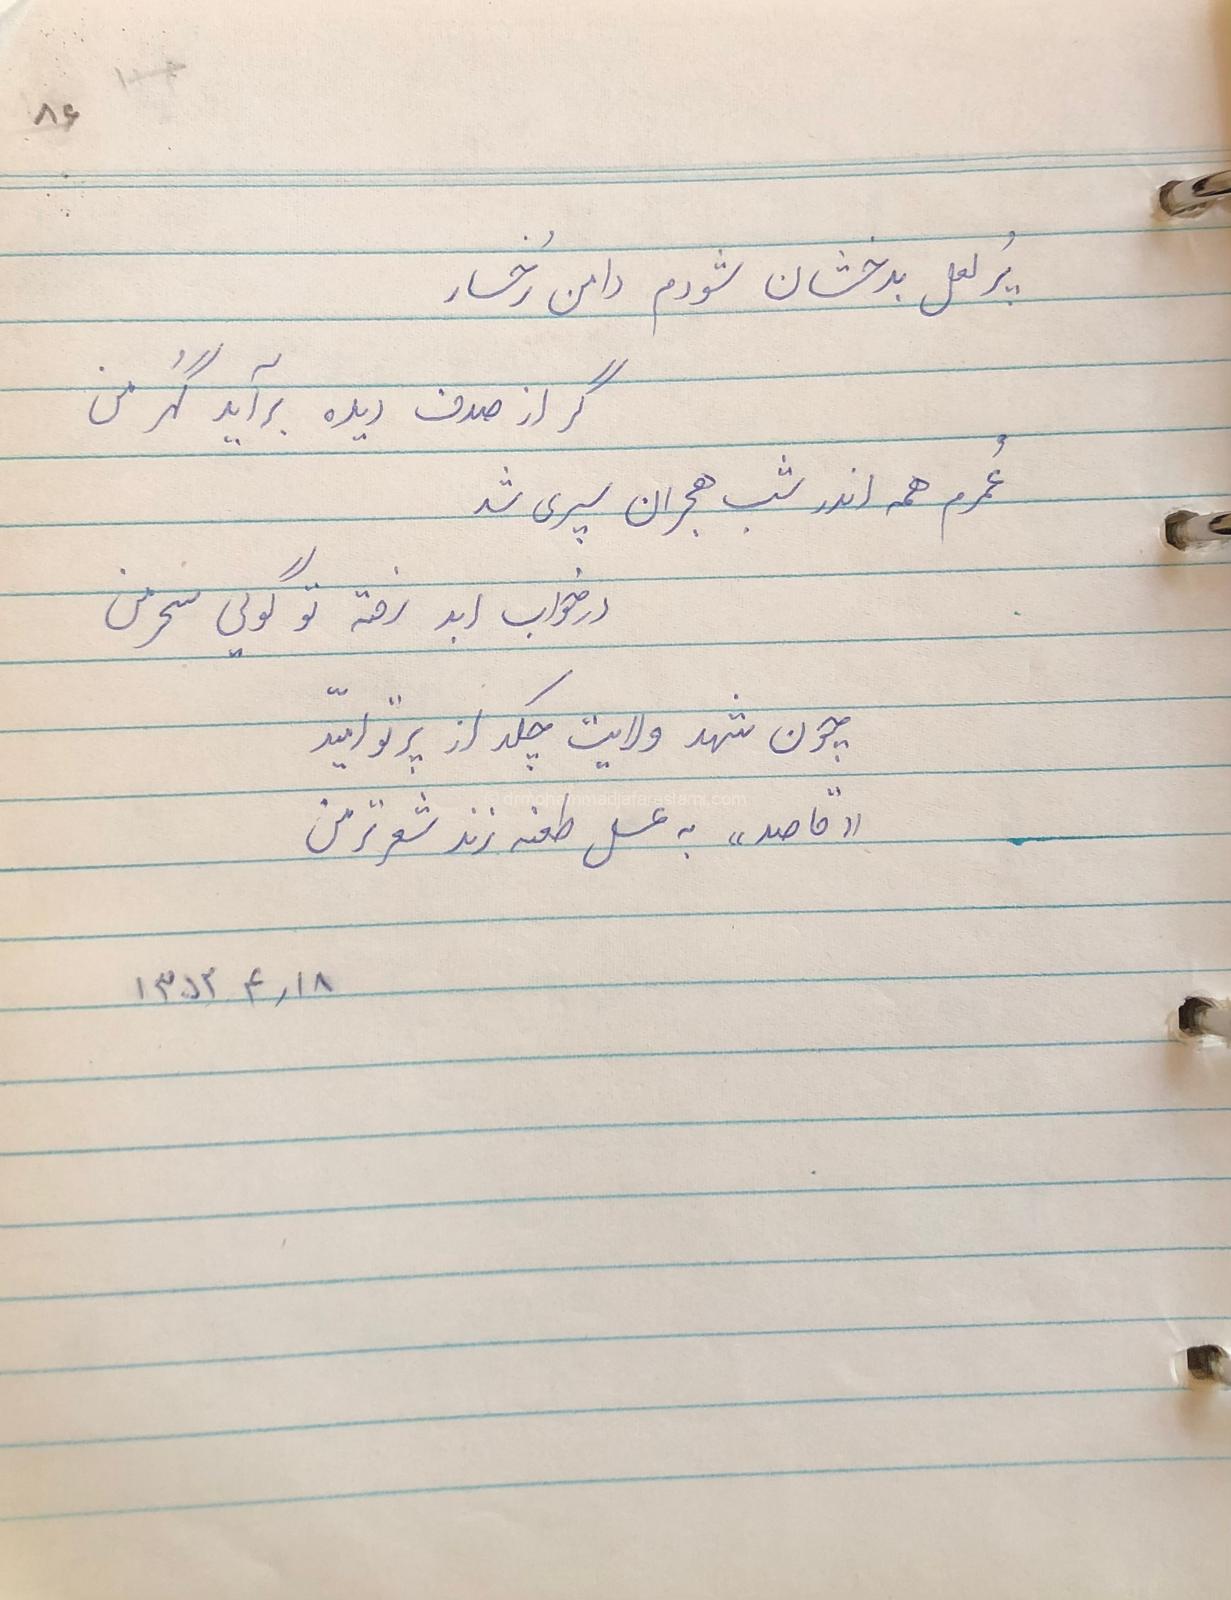 ۸۶
پُر لعل بدخشان شودم دامن رُخسار
گر از صدف دیده برآید گُهر من
عُمرم همه اندر شب هجران سپری شد
در خواب ابد رفته تو گویی سحر من
چون شهد ولایت چکد از پرتو امّید
«قاصد» به عسل طعنه زند شعر تر من
drmohammadjafareslami.com
۱۸ر۴ ۱۳۵۲